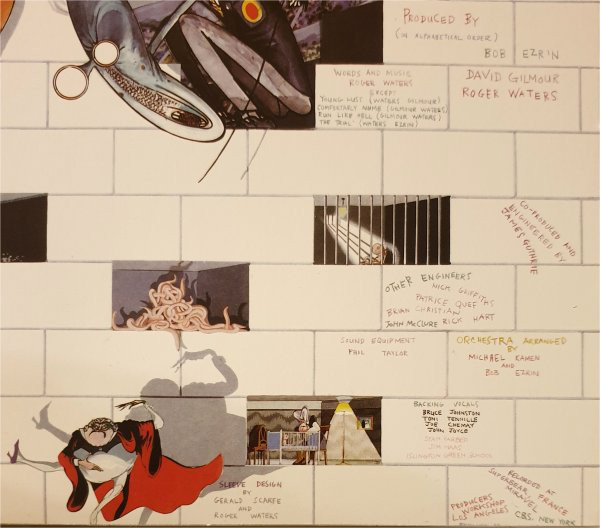 PRODUCED BY
(IN ALPHABETICAL ORDER)
BOB EZRIN
DAVID GILMOUR
ROGER WATERS
WORDS AND MUSIC
ROGER WATERS
EXCEPT
YOUNG LUST (WATERS GILMOUR)
COMFORTABLY NUMB (GILMOUR WATERS)
RUN LIKE HELL (GILMOUR WATERS)
THE TRIAL (WATERS EZRIN)
CO-PRODUCED AND
ENGINEERED BY
JAMES GUTHRIE
OTHER ENGINEERS
NICK GRIFFITHS
PATRICE QUEF
BRIAN CHRISTIAN
JOHN McCLURE RICK HART
SOUND EQUIPMENT
PHIL TAYLOR
ORCHESTRA ARRANGED
BY
MICHAEL KAMEN
AND
BOB EZRIN
BACKING VOCALS
BRUCE JOHNSTON
TONI TENNILLE
JOE CHEMAY
JOHN JOYCE
STAN FARBER
JIM HAAS
ISLINGTON GREEN SCHOOL
SLEEVE DESIGN
BY
GERALD SCARFE
AND
ROGER WATERS
RECORDED AT
SUPERBEAR, FRANCE
MIRAVAL
PRODUCERS
WORKSHOP
LOS ANGELES
CBS. NEW YORK